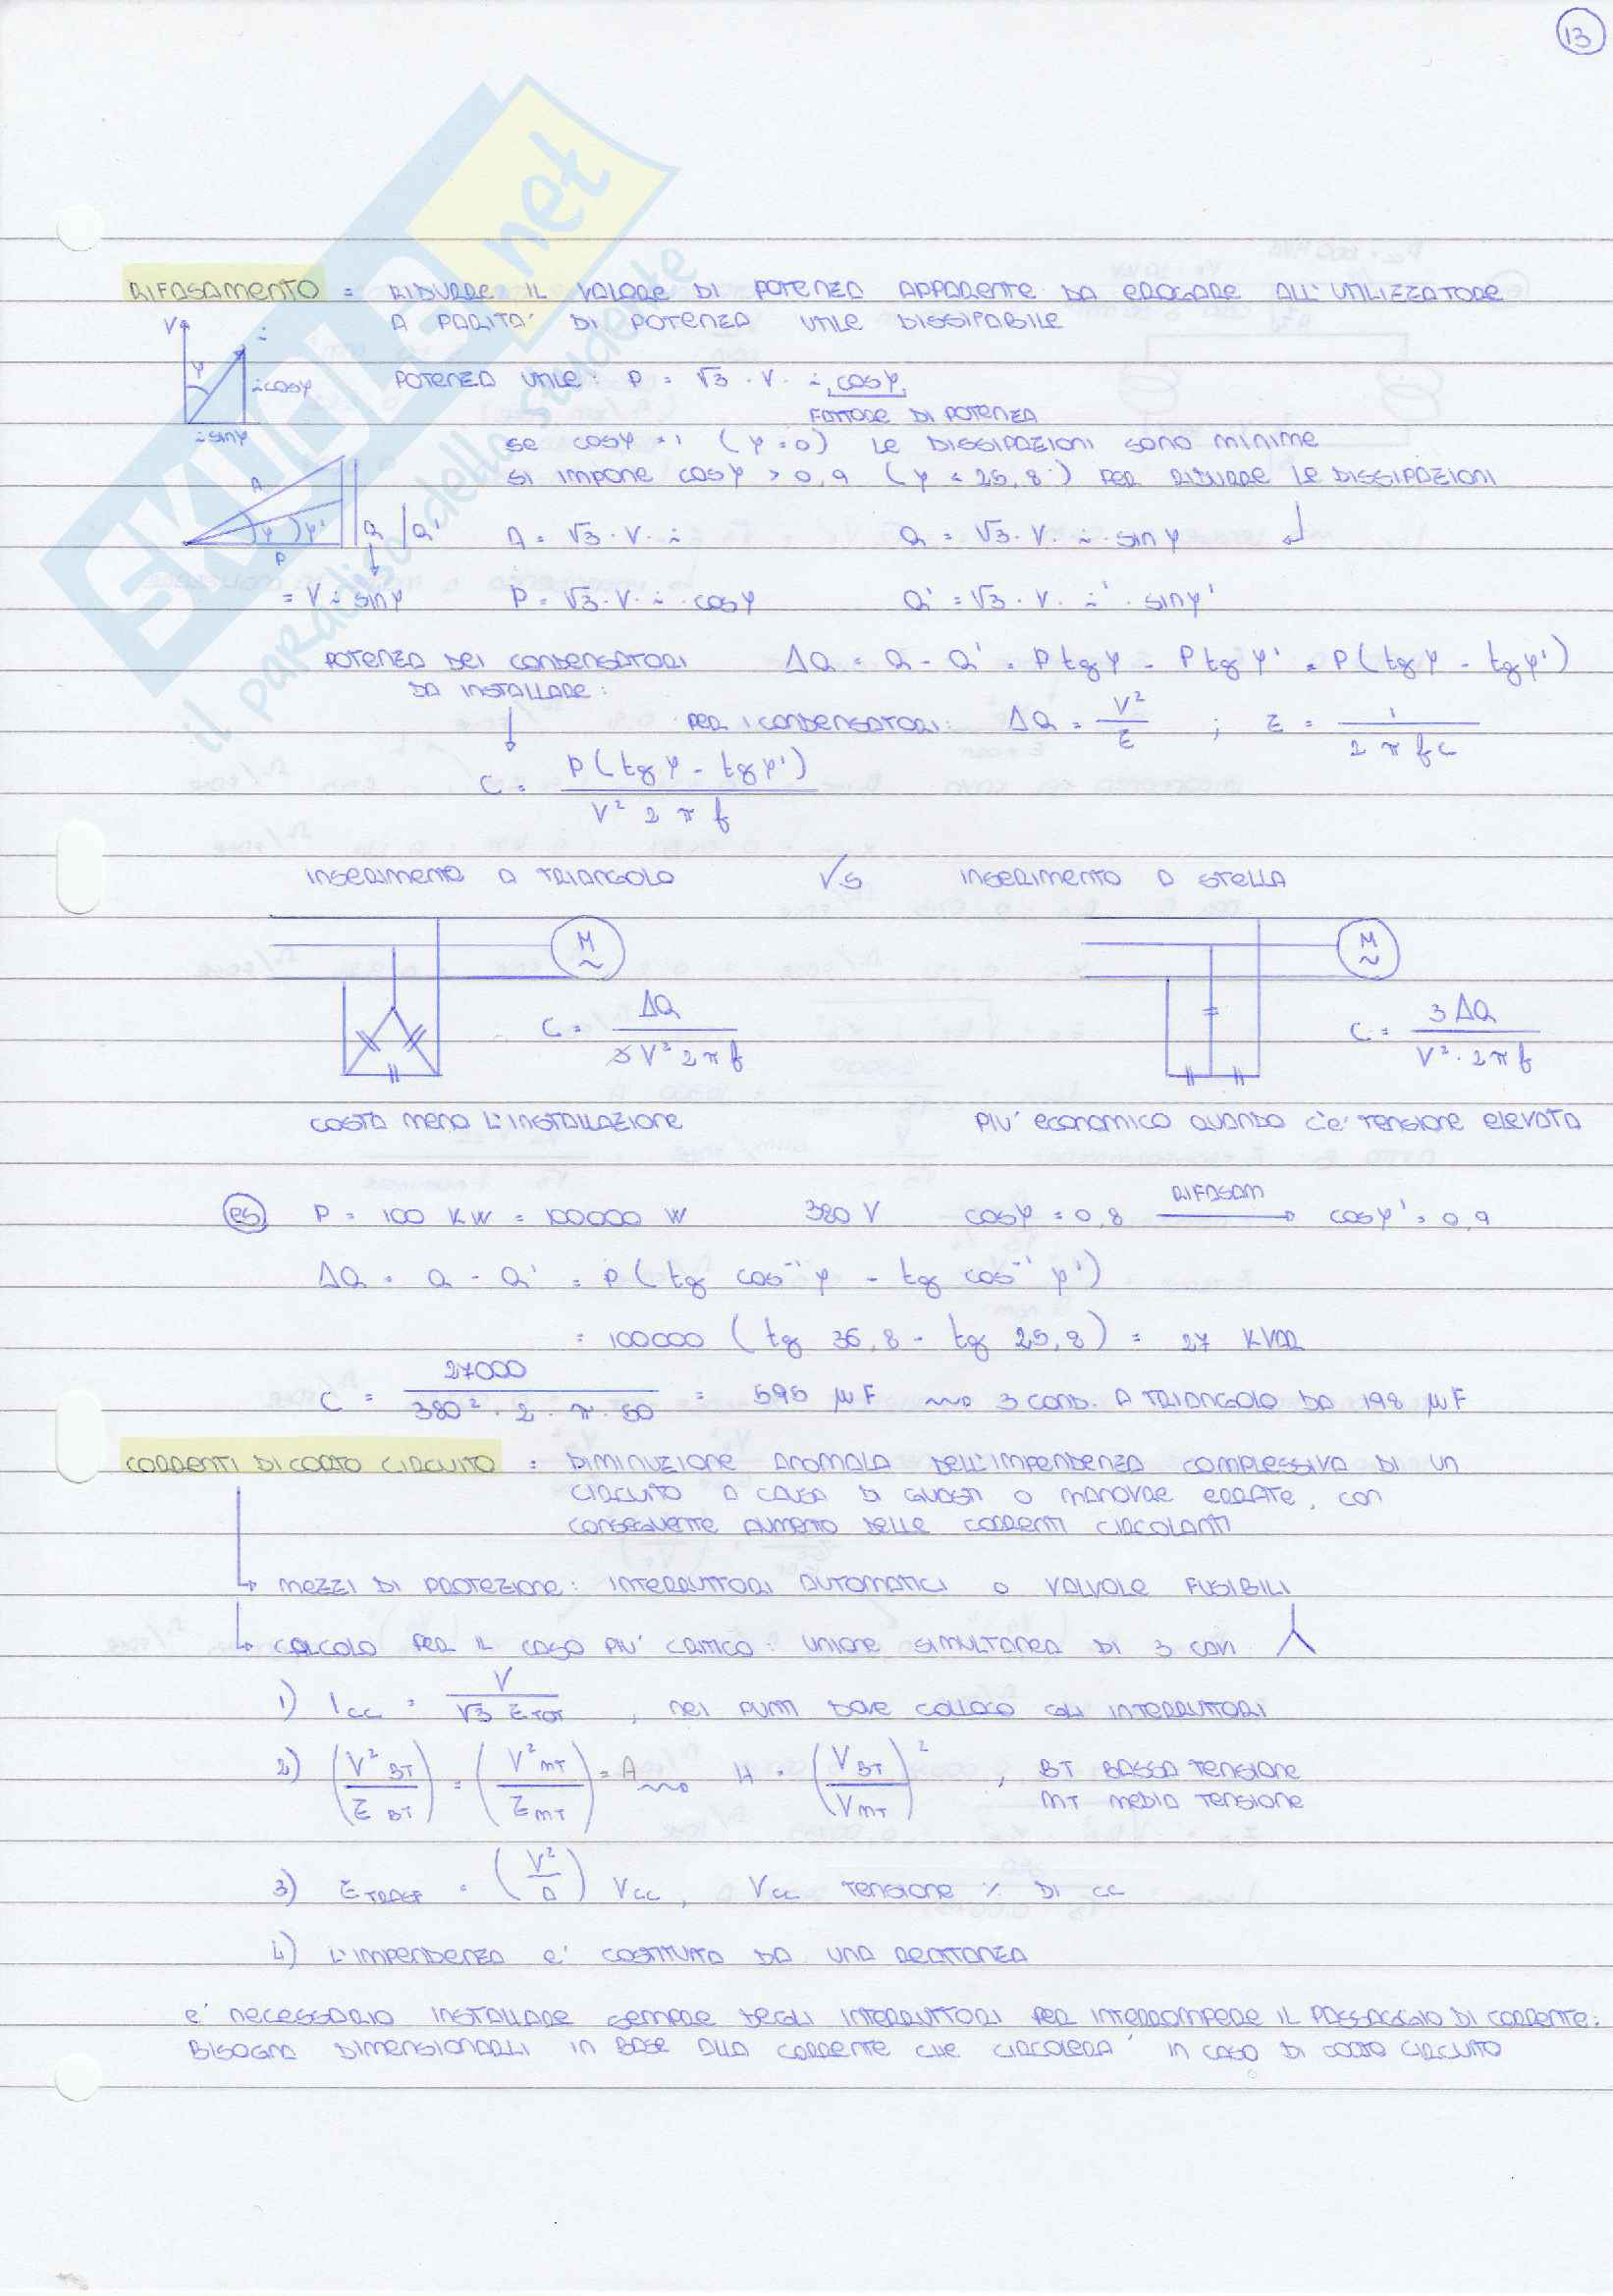 13
SKUOLA.net
il paradiso dello studente
RIFASAMENTO = RIDURRE IL VALORE DI POTENZA APPARENTE DA EROGARE ALL'UTILIZZATORE
A PARITA' DI POTENZA UTILE DISSIPABILE
V i φ i cosφ i sinφ
POTENZA UTILE: P = √3 · V · i · cosφ
FATTORE DI POTENZA
SE cosφ = 1 (φ = 0) LE DISSIPAZIONI SONO MINIME
SI IMPONE cosφ > 0,9 (φ < 25,8°) PER RIDURRE LE DISSIPAZIONI
A φ φ' P Q Q'
A = √3 · V · i Q = √3 · V · i · sinφ
= V i sinφ P = √3 · V · i · cosφ Q' = √3 · V · i' · sinφ'
POTENZA DEI CONDENSATORI ΔQ = Q - Q' = P tgφ - P tgφ' = P(tgφ - tgφ')
DA INSTALLARE:
PER I CONDENSATORI: ΔQ = V²/Z ; Z = 1/(2πfC)
C = P(tgφ - tgφ') / (V² 2πf)
INSERIMENTO A TRIANGOLO VS INSERIMENTO A STELLA
M ~ M ~
C = ΔQ / (3V² 2πf) C = 3ΔQ / (V² · 2πf)
COSTA MENO L'INSTALLAZIONE PIU' ECONOMICO QUANDO C'E' TENSIONE ELEVATA
es P = 100 KW = 100000 W 380 V cosφ = 0,8 RIFASAM → cosφ' = 0,9
ΔQ = Q - Q' = P(tg cos⁻¹φ - tg cos⁻¹φ')
= 100000 (tg 36,8 - tg 25,8) = 27 KVAR
C = 27000 / (380² · 2 · π · 50) = 595 μF ⇝ 3 COND. A TRIANGOLO DA 198 μF
CORRENTI DI CORTO CIRCUITO = DIMINUZIONE ANOMALA DELL'IMPENDENZA COMPLESSIVA DI UN
CIRCUITO A CAUSA DI GUASTI O MANOVRE ERRATE, CON
CONSEGUENTE AUMENTO DELLE CORRENTI CIRCOLANTI
↳ MEZZI DI PROTEZIONE: INTERRUTTORI AUTOMATICI O VALVOLE FUSIBILI
↳ CALCOLO PER IL CASO PIU' CRITICO: UNIONE SIMULTANEA DI 3 CAVI
1) Icc = V / (√3 Z TOT) , NEI PUNTI DOVE COLLOCO GLI INTERRUTTORI
2) (V²BT / Z BT) = (V²MT / Z MT) = A ⇝ H = (V BT / V MT)² , BT BASSA TENSIONE
MT MEDIA TENSIONE
3) Z TRASF = (V²/A) Vcc , Vcc TENSIONE % DI CC
4) L'IMPENDENZA E' COSTITUITA DA UNA REATTANZA
E' NECESSARIO INSTALLARE SEMPRE DEGLI INTERRUTTORI PER INTERROMPERE IL PASSAGGIO DI CORRENTE:
BISOGNA DIMENSIONARLI IN BASE ALLA CORRENTE CHE CIRCOLERA' IN CASO DI CORTO CIRCUITO